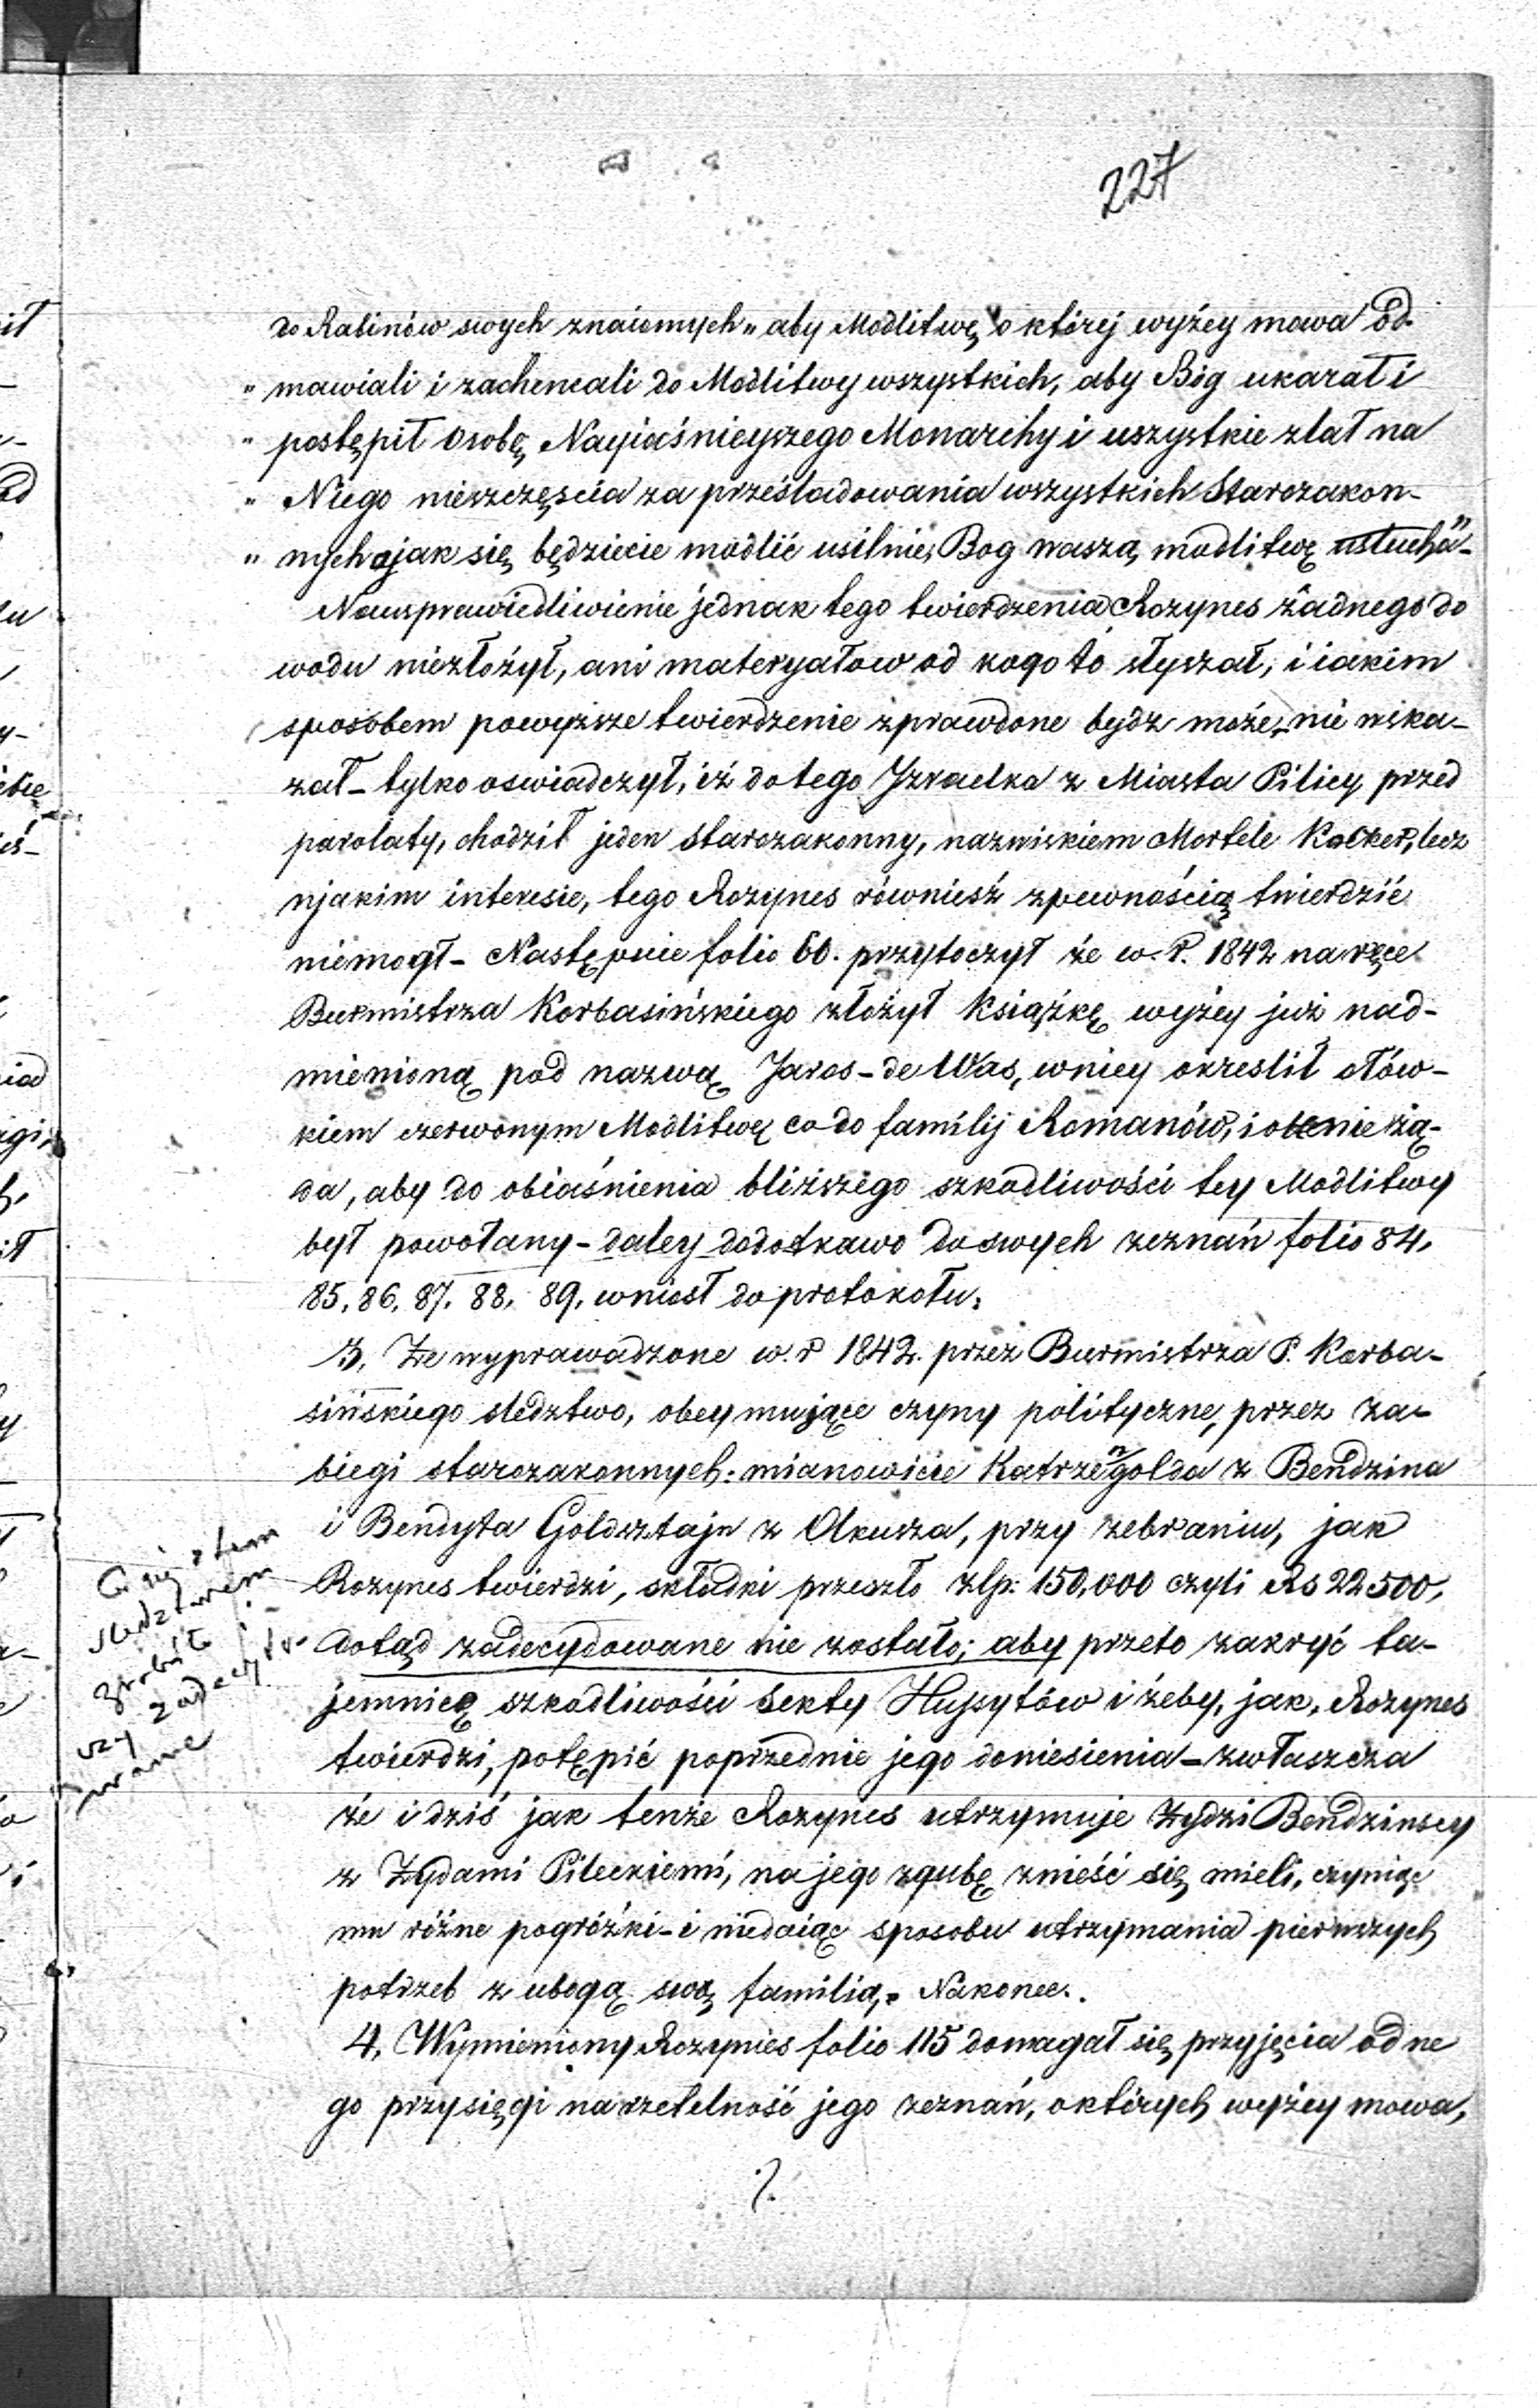 227
do Rabinów swych znaiomych „ aby Modlitwę o której wyżey mowa od-
„ mawiali i zachencali do Modlitwy wszystkich, aby Bóg ukarał i
„ postępił osobę Nayiaśnieyszego Monarchy i wszystkie zlał na
„ Niego nieszczęscia za prześladowania wszystkich Starozakon-
„ nych a jak się będziecie modlić usilnie, Bog waszą modlitwę usłucha"-
Nausprawiedliwienie jednak tego twierdzenia Rozynes żadnego do
wodu niezłożył, ani materyałow od kogo to słyszał, i iakim
sposobem powyższe twierdzenie zprawdone bydz może, nie wska-
zał - tylko oswiadczył, iż do tego Jzraelka z Miasta Pilicy przed
parolaty, chodził jeden starozakonny, nazwiskiem Mortele Kocker, lecz
wjakim interesie, tego Rozynes równiesż zpewnością twierdzić
niemogł - Następnie folio 60. przytoczył że w. r. 1842 na ręce
Burmistrza Korbasińskiego złożył Książkę wyżey już nad-
mienioną pod nazwą Jaros-de Was, wniey okreslił ołów-
kiem czerwonym Modlitwę co do familij Romanów, i obenie żą-
da, aby do obiaśnienia bliższego szkodliwości tey Modlitwy
był powołany - daley dodatkawo do swych zeznań folio 84,
85, 86, 87, 88, 89, wniosł do protokołu;
3, Że wyprawadzone w. r 1842. przez Burmistrza P. Korba-
sińskiego sledztwo, obeymujące czyny polityczne, przez za-
biegi starozakonnych: mianowicie Katrzengolda z Bendzina
i Bendyta Goldsztajn z Olkusza, przy zebraniu, jak
Rozynes twierdzi, składki przeszło zlp: 150,000 czyli Rs 22500,
dotąd zadecydowane nie zostało; aby przeto zakryć ta-
jemnicę szkodliwości sekty Hussytów i żeby, jak, Rozynes
twierdzi, potępić poprzednie jego doniesienia - zwłaszcza
że i dziś jak tenże Rozynes utrzymuje Żydzi Bendzinscy
z Żydami Pileckiemi, na jego zgubę znieść się mieli, czyniąc
mu różne pogróżki - i niedaiąc sposobu utrzymania pierwszych
potrzeb z ubogą swą familią,. Nakonec.
4, Wymieniony Rozynes folio 115 domagał się przyjęcia od ne
go przysięgi na rzetelność jego zeznań, októrych wyżey mowa,
Co się z tem
sledztwem
zrobiło i
czy zadecydo-
wane